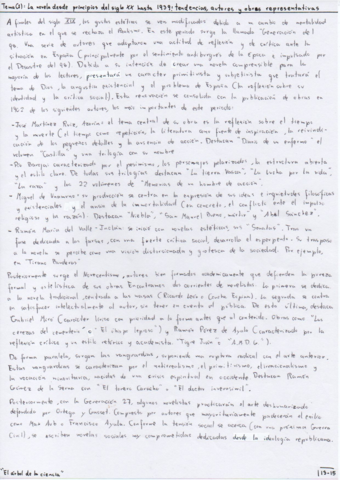 Tema (1): La novela desde principios del siglo XX hasta 1939: tendencias, autores y obras representativas
A finales del siglo XIX, los gustos estéticos se ven modificados debido a un cambio de mentalidad
artística en el que se rechaza el Realismo. En este período surge la llamada "Generación del
98. Una serie de autores que adoptaron una actitud de reflexión y de crítica ante la
situación en España (principalmente por el sentimiento
el Desastre del 98). Debido a su intención de crear una novela comprensible para la
mayoría de los lectores, presentará un carácter intimista y subjetivista que tratará el
tema de Dios, la angustia existencial y el problema de España (la reflexión sobre su
identidad y la crítica social). Esta renovación se consolida con la publicación de obras en
1902 de los siguientes autores, los más importantes de este período:
- José Martínez Ruiz, Azorín: el tema central de su obra es la reflexión sobre el tiempo
y la muerte (el tiempo como repetición, la literatura como fuente de inspiración, la
de los pequeños detalles y la ausencia de acción). Destacan "Doña Inés"
- Pío Baroja: caracterizado por el pesimismo, los personajes polarizados, la estructura abierta
y el estilo claro. De todas sus trilogías destacan "La tierra vasca", "La lucha por la vida",
"La raza" y los 22 volúmenes de "Memorias de un hombre de acción".
- Miguel de Unamuno: su producción se centra en la expresión de sus ideas e inquietudes filosóficas
y existenciales y el ansia de la inmortalidad (en concreto, el conflicto entre el impulso
religioso y la razón). Destacan "Niebla", "San Manuel Bueno, mártir" y "Abel Sánchez".
- Ramón María del Valle-Inclán: se inició con novelas estéticas, sus "Sonatas". Tras un
fase dedicada a las farsas, con una fuerte crítica social, desarrolla el esperpento. Su traspaso
a la novela se percibe como una visión distorsionada y grotesca de la sociedad. Por ejemplo,
en "Tirano Banderas"
Posteriormente surge el Novecentismo, autores bien formados académicamente que defienden la pureza
formal y estilística de sus obras. Encontramos dos corrientes de novelistas. La primera se dedica
a la novela tradicional, centrada en los vascos (Ricardo León y Concha Espina). La segunda se centra
en satisfacer intelectualmente al autor, sin tener en cuenta al público. De esta última, destacan
Gabriel Miró (carácter lírico con prioridad a la forma antes que al contenido. Obras como "Las
cerezas del cementerio" o "El obispo leproso") y Ramón Pérez de Ayala (caracterizado por la
reflexión crítica y un estilo retórico y academicista. "Tigre Juan" o "A.M.D.G.")
De forma paralela, surgen las vanguardias, suponiendo una ruptura radical con el arte anterior.
Estas vanguardias se caracterizan por el antirrealismo, el primitivismo, el irracionalismo y
la vocación minoritaria, nacidas de una crisis espiritual en occidente. Destacan Ramón
Gómez de la Serna con "El torero Caracho" o "El doctor inverosímil".
Posteriormente, con la Generación 27, algunos novelistas practicarán el arte deshumanizado
defendido por Ortega y Gasset. Compuesto por autores que mayoritariamente producirán el exilio
como Max Aub o Francisco Ayala. Conforme la tensión social se acerca (con una próxima Guerra
Civil), se escriben novelas sociales muy comprometidas dedicadas desde la ideología republicana.
"El árbol de la ciencia"
13-15